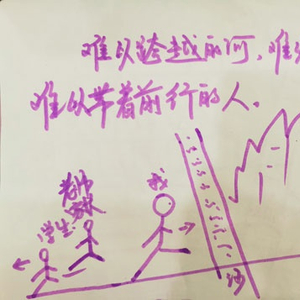 难以跨越的河,难
难以带着前行的人。
老师
学生
我
沙